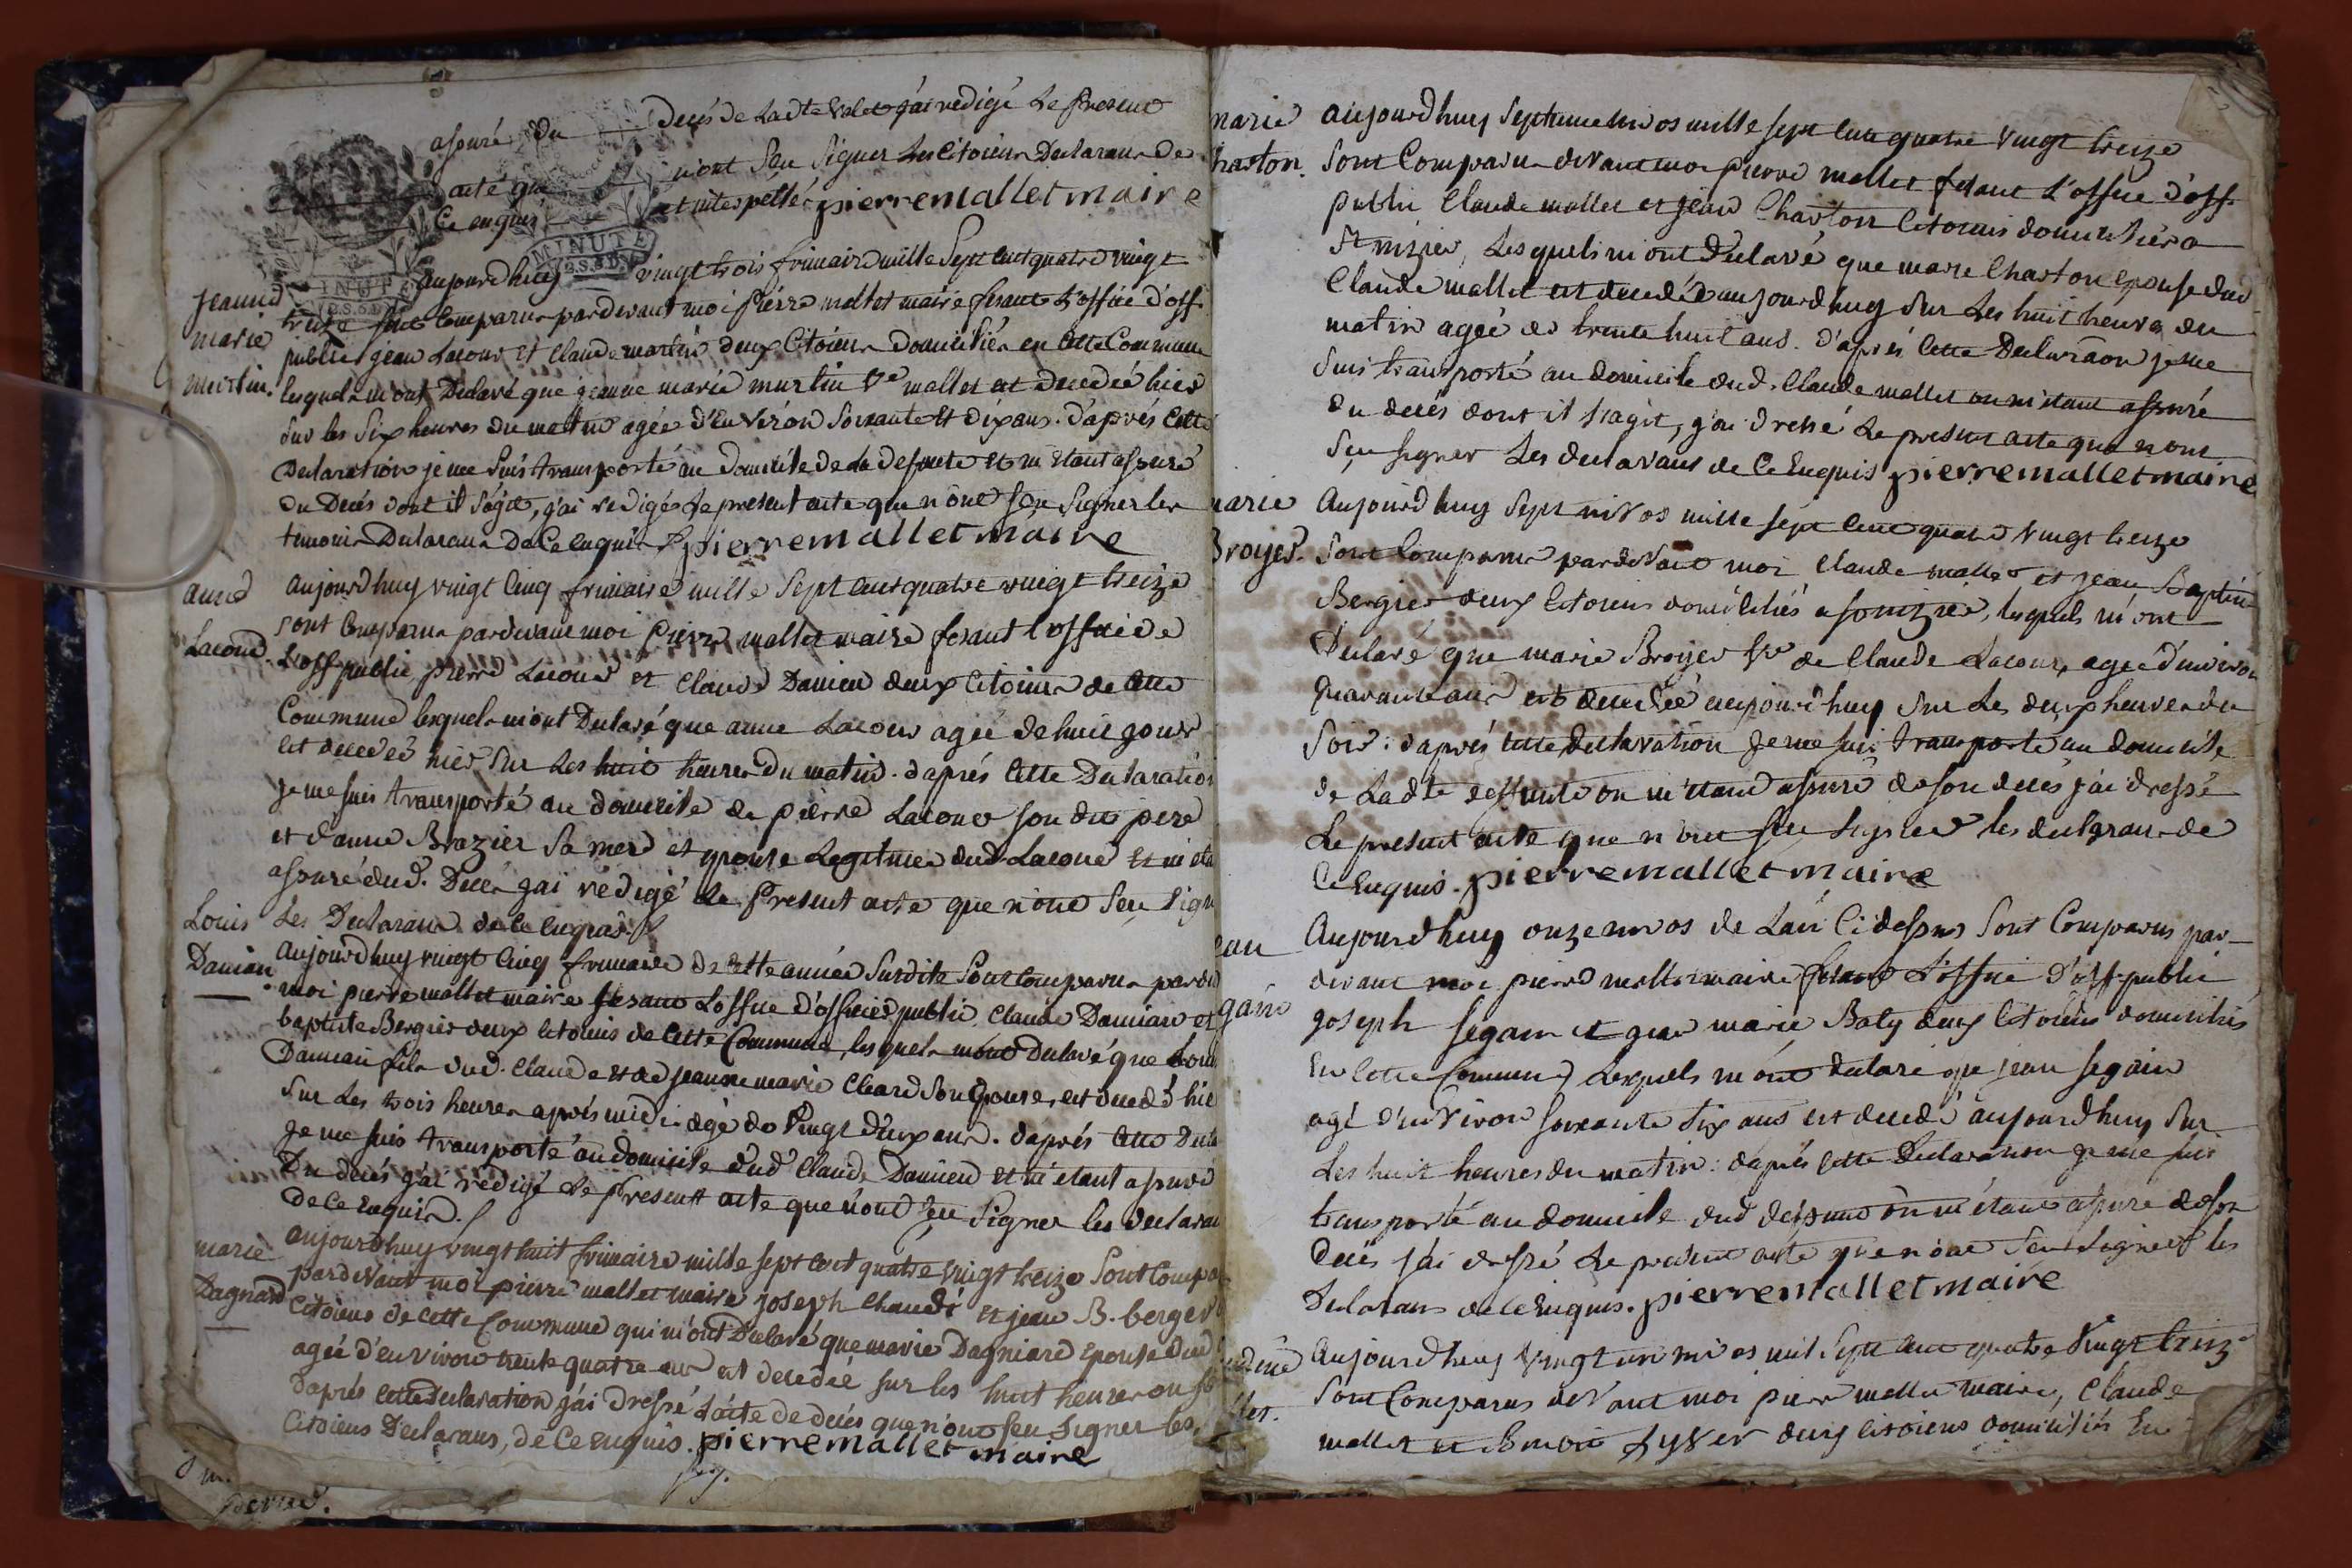 assuré du Decés de Ladte Valet j'ai redigé Le present
acte que n'ont Seu Signer Les Citoiens Declarans de
Ce enquis et interpellés pierremalletmaire
MINUTE
MINUTE
Jeanne
marie
martin.
aujourdhuy vingt trois frimaire mille Sept cent quatre vingt
treize sont Comparus pardevant moi Pierre mallet maire fesant L'office d'off.
public jean Lacour et Claude martin deux Citoiens Domiciliés en cette Commune
lesquels m'ont Declaré que jeanne marie martin Ve mallet est Decedée hier
sur les Six heures du matin agée d'environ Soixante et dix ans. d'aprés Cette
Declaration je me suis transporté au Domicile de La defunte et m'etant assuré
du Decés dont il s'agit, j'ai redigé Le present acte que n'ont seu Signer les
temoins Declarans De Ce enquis pierremalletmaire
anne
Lacour.
aujourdhuy vingt Cinq frimaire mille Sept cent quatre vingt treize
sont Comparus pardevant moi Pierre mallet maire fesant l'office de
L'off public, pierre Lacour et Claude Damien deux Citoiens de cette
Commune lesquels m'ont Declaré que anne Lacour agée de huit jours
est decedée hier sur Les huit heures Du matin. d'aprés Cette Declaration
je me suis transporté au domicile de pierre Lacour son dit pere
et d'anne Brazier Sa mere et epouse Legitime dud. Lacour et m'eta
assuré dud. Decés j'ai rédigé Le Present acte que n'ont Seu Sign
Les Declarans de Ce enquis.
Louis
Damian
aujourdhuy vingt Cinq frimaire de cette année Susdite Sont Comparus parde
moi pierre mallet maire fesant L'office d'officier public, Claude Damian et
baptiste Bergier deux Citoiens de Cette Commune, lesquels m'ont Declaré que Loui
Damian fils dud. Claude et de jeanne marie Cleard Son epouse, est decedé hie
sur Les trois heures aprés midi agé de Vingt Deux ans. d'aprés Cette Decla
je me suis transporté au domicile dud. Claude Damien et m'etant assuré
Du decés j'ai redigé Le Present acte que n'ont Seu Signer les declaran
de Ce enquis.
marie
Dagnard
aujourdhuy vingt huit frimaire mille sept cent quatre vingt treize Sont Compa
pardevant moi pierre mallet maire joseph Chaudi et jean B. berger
Citoiens de Cette Commune qui m'ont Declaré que marie Dagniard epouse dud
agée d'environ trente quatre ans est decedée sur les huit heures
d'aprés cette declaration j'ai Dressé L'acte de decés que n'ont Seu Signer les
Citoiens Declarans, de Ce enquis. pierremalletmaire
marie
haston.
aujourdhuy Septieme nivos mille sept cent quatre vingt treize
sont Comparus devant moi pierre mallet fesant L'office d'off.
public Claude mallet et jean Chaston Citoiens domiciliés a
St nizier, Lesquels m'ont declaré que marie Chaston epouse dud
Claude mallet est decedée aujourdhuy sur Les huit heures du
matin agée de trente huit ans. d'aprés Cette Declaraon je me
suis transporté au domicile dud. Claude mallet ou m'etant assuré
du decés dont il s'agit, j'ai dressé Le present acte que n'ont
seu signer Les declarans de Ce Enquis pierremalletmaire
marie
Broyer.
Aujourdhuy Sept nivos mille sept cent quatre vingt treize
sont Comparus pardevant moi Claude mallet et jean Baptiste
Bergier deux Citoiens domiciliés a St nizier, lesquels m'ont
Declaré que marie Broyer Ve de Claude Lacour, agée d'environ
quarante ans est decedée aujourdhuy sur Les deux heures du
Soir. d'aprés cette declaration je me suis transporté au domicile
de Ladte deffunte ou m'etant assuré de son decés j'ai dressé
Le present acte que n'ont Seu Signer les declarans de
Ce Enquis. pierremalletmaire
ean
gain
Aujourdhuy onze nivos de L'an Ci dessus Sont Comparus par
devant moi pierre mallet maire fesant L'office d'off. public
joseph segain et jean marie Baty deux Citoiens domiciliés
En Cette Commune, Lesquels m'ont declaré que jean segain
agé d'environ soixante Six ans est decedé aujourdhuy sur
Les huit heures du matin: d'aprés Cette Declaration je me suis
transporté au domicile dud defunt ou m'étant assuré de son
Decés j'ai dressé Le present acte que n'ont Seu Signer les
Declarans de Ce Enquis. pierremalletmaire
Aujourdhuy Vingt un nivos mil Sept cent quatre Vingt treize
sont Comparus devant moi pierre mallet maire, Claude
mallet et Benoit deux Citoiens domiciliés En